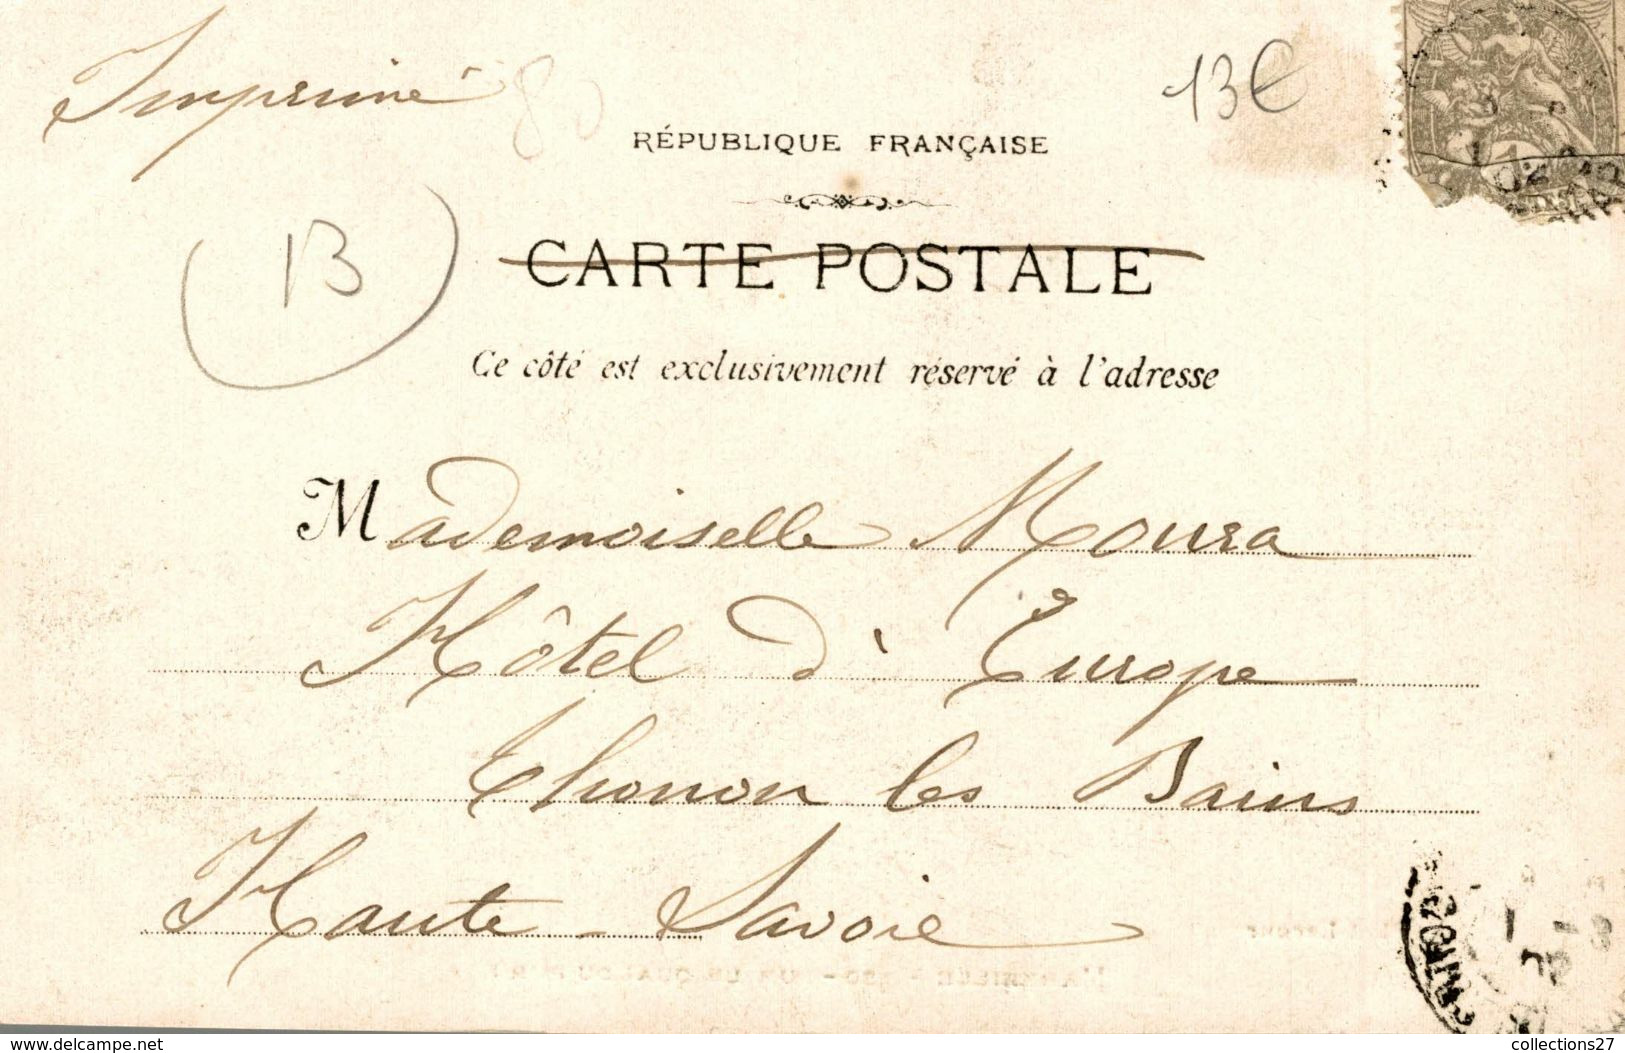 Imprimé
80
13€
RÉPUBLIQUE FRANÇAISE
13
CARTE POSTALE
Ce côté est exclusivement réservé à l'adresse
Mademoiselle Moura
Hôtel d'Europe
Thonon les Bains
Haute-Savoie
www.delcampe.net
collections27